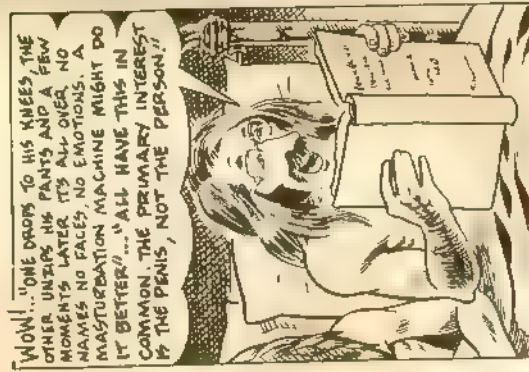 WOW!... "ONE DROPS TO HIS KNEES, THE
OTHER UNZIPS HIS PANTS AND A FEW
MOMENTS LATER ITS ALL OVER. NO
NAMES NO FACES, NO EMOTIONS. A
MASTURBATION MACHINE MIGHT DO
IT BETTER"... "ALL HAVE THIS IN
COMMON. THE PRIMARY INTEREST
IS THE PENIS, NOT THE PERSON"